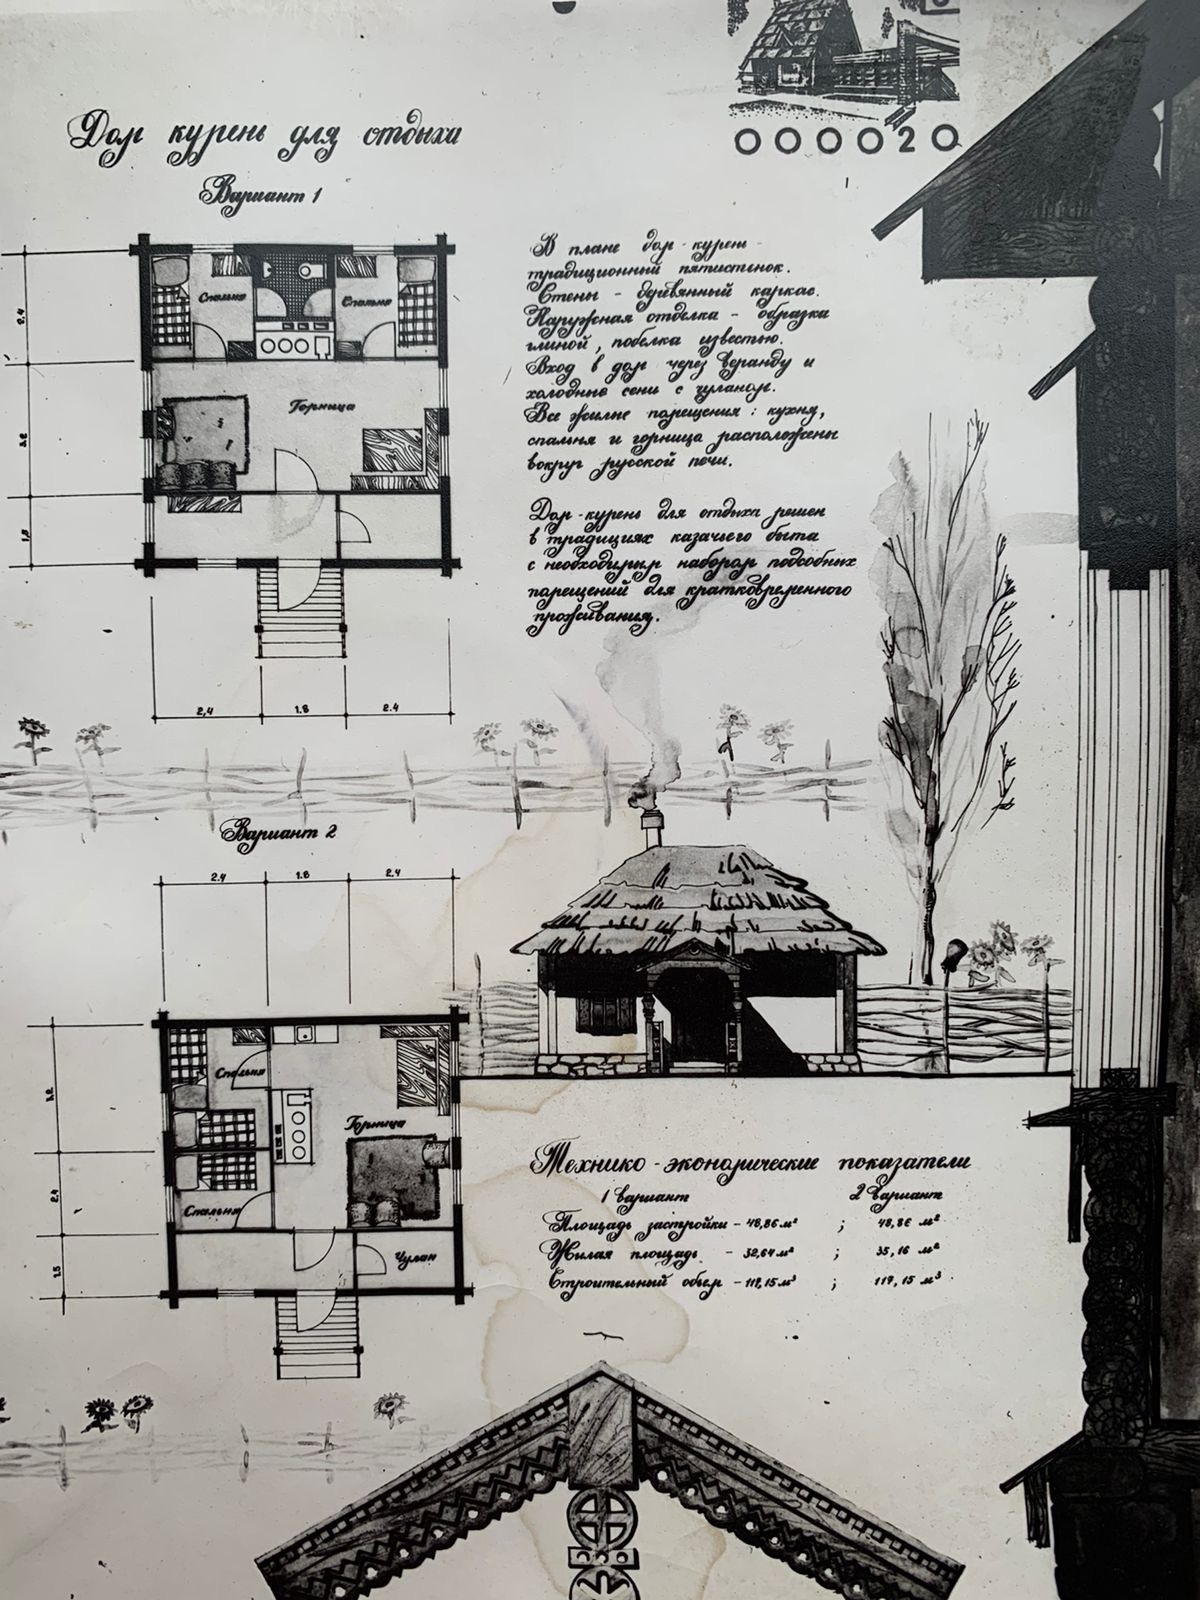 000020
Дом курень для отдыха
Вариант 1
В плане дом-курень -
традиционный пятистенок.
Стены - деревянный каркас.
Наружная отделка - обмазка
глиной, побелка известью.
Вход в дом через веранду и
холодные сени с чуланом.
Все жилые помещения: кухня,
спальня и горница расположены
вокруг русской печи.
Дом-курень для отдыха решен
в традициях казачьего быта
с необходимым набором подсобных
помещений для кратковременного
проживания.
Спальня
Спальня
Горница
2,4
3,2
2,4
1.8
2.4
Вариант 2
2.4
1.8
2.4
Спальня
Горница
Спальня
Чулан
3,2
2,4
1.5
Технико-экономические показатели
1 вариант 2 вариант
Площадь застройки - 48,86 м² ; 48,86 м²
Жилая площадь - 32,64 м² ; 35,16 м²
Строительный объем - 119,15 м³ ; 119,15 м³